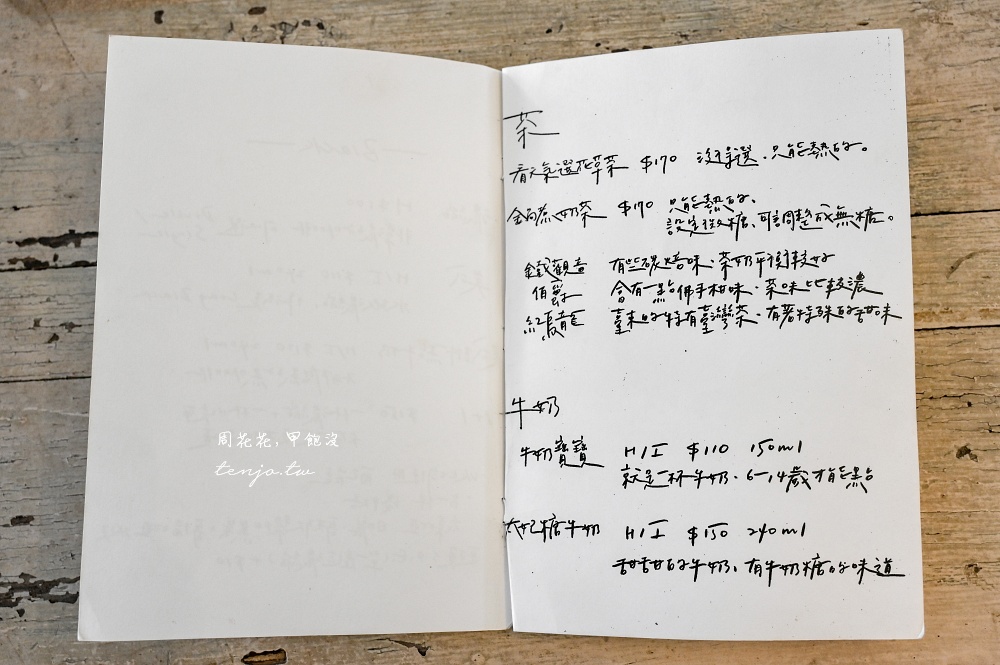 茶
看天氣選花草茶 $170 沒得選、只能熱的。
鍋煮奶茶 $170 只能熱的、
設定微糖、可調整成無糖。
鐵觀音 有些碳焙味、茶奶平衡較好
伯爵 會有一點佛手柑味、茶味比較濃
紅烏龍 臺東的特有臺灣茶、有著特殊的甜味
牛奶
牛奶寶寶 H/I $110 150ml
就是一杯牛奶、6-14歲才能點
太妃糖牛奶 H/I $150 240ml
甜甜的牛奶、有牛奶糖的味道
周花花,甲飽沒
tenjo.tw